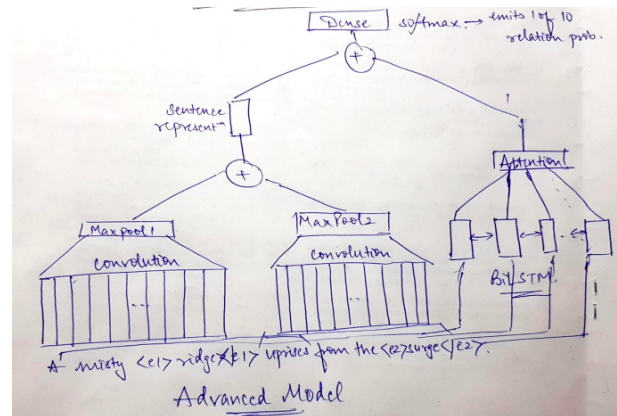 Dense softmax. → emits 1 of 10
relation prob.
+
sentence
represent^n
+
Attention
Maxpool1
MaxPool2
convolution
convolution
...
...
BiLSTM
A misty <e1> ridge </e1> uprises from the <e2> surge </e2>.
Advanced Model